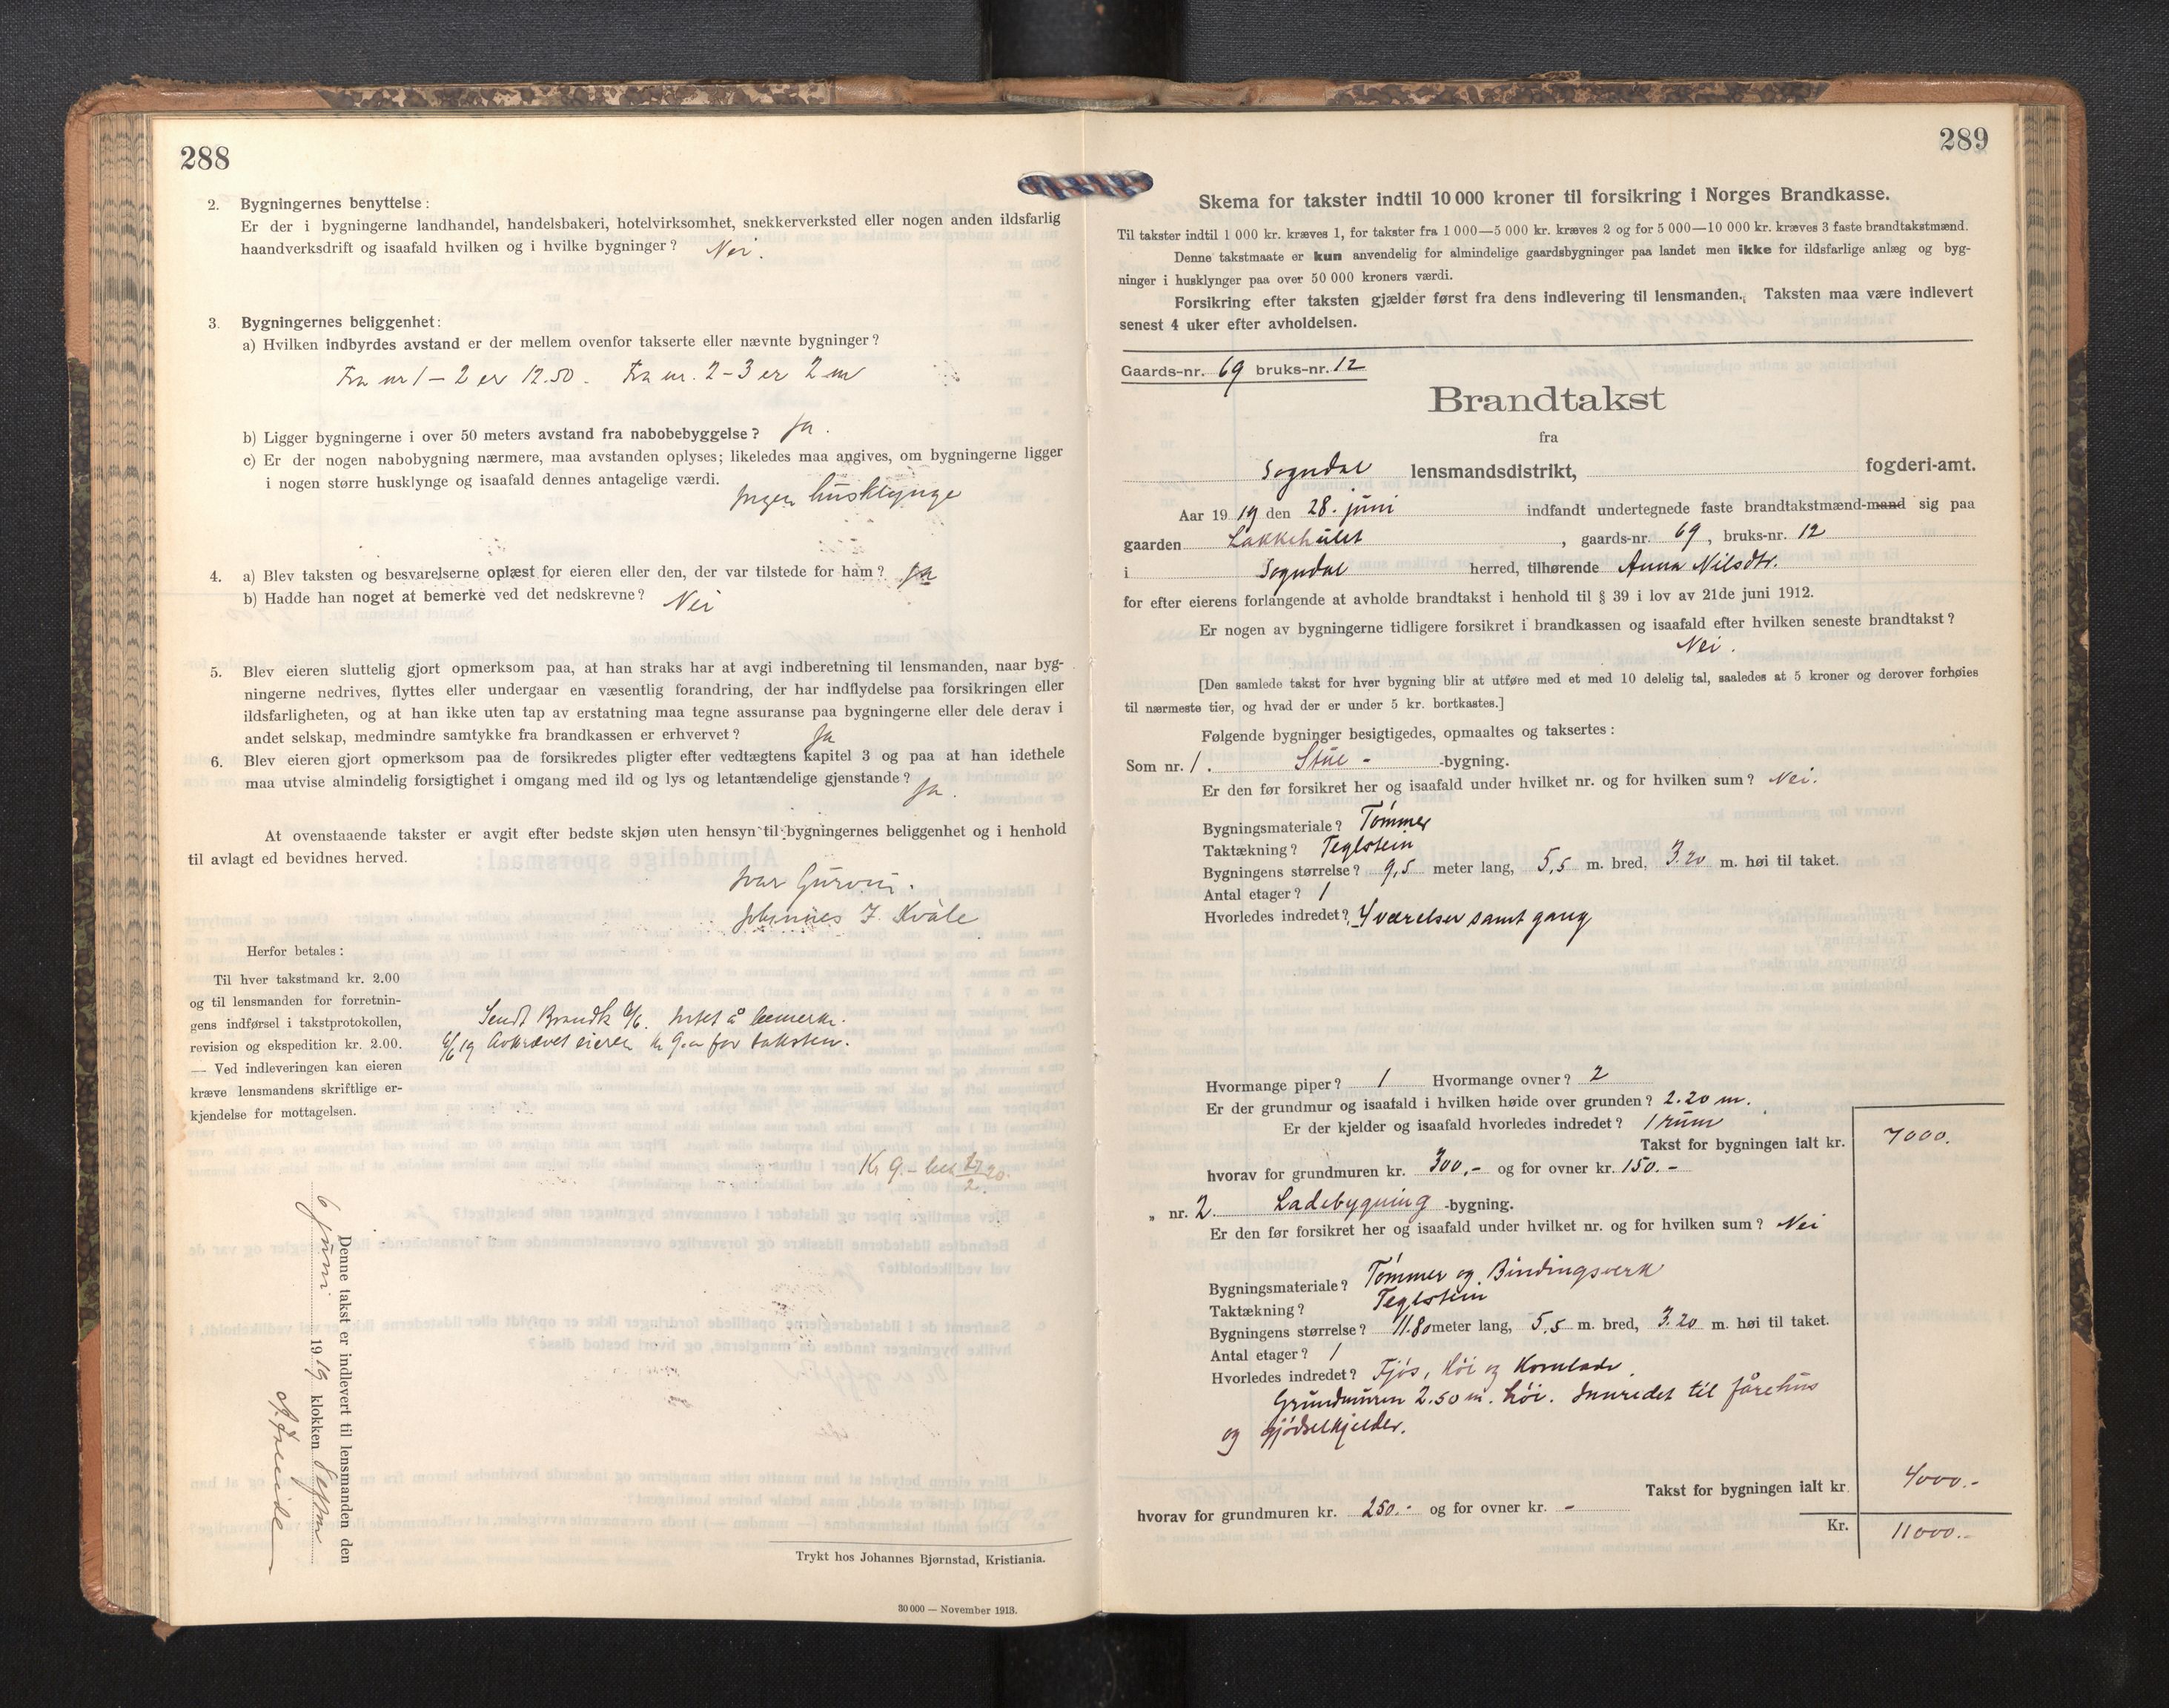 288
2. Bygningernes benyttelse:
Er der i bygningerne landhandel, handelsbakeri, hotelvirksomhet, snekkerverksted eller nogen anden ildsfarlig
haandverksdrift og isaafald hvilken og i hvilke bygninger? Nei.
3. Bygningernes beliggenhet:
a) Hvilken indbyrdes avstand er der mellem ovenfor takserte eller nævnte bygninger?
Fra nr 1 – 2 er 12.50. Fra nr. 2 – 3 er 2 m
b) Ligger bygningerne i over 50 meters avstand fra nabobebyggelse? Ja.
c) Er der nogen nabobygning nærmere, maa avstanden oplyses; likeledes maa angives, om bygningerne ligger
i nogen større husklynge og isaafald dennes antagelige værdi. Ingen husklynge
4. a) Blev taksten og besvarelserne oplæst for eieren eller den, der var tilstede for ham? Ja
b) Hadde han noget at bemerke ved det nedskrevne? Nei
5. Blev eieren sluttelig gjort opmerksom paa, at han straks har at avgi indberetning til lensmanden, naar byg-
ningerne nedrives, flyttes eller undergaar en væsentlig forandring, der har indflydelse paa forsikringen eller
ildsfarligheten, og at han ikke uten tap av erstatning maa tegne assuranse paa bygningerne eller dele derav i
andet selskap, medmindre samtykke fra brandkassen er erhvervet? Ja
6. Blev eieren gjort opmerksom paa de forsikredes pligter efter vedtægtens kapitel 3 og paa at han idethele
maa utvise almindelig forsigtighet i omgang med ild og lys og letantændelige gjenstande? Ja.
At ovenstaaende takster er avgit efter bedste skjøn uten hensyn til bygningernes beliggenhet og i henhold
til avlagt ed bevidnes herved.
Ivar Gurvin.
Johannes J. Kvåle
Herfor betales:
Til hver takstmand kr. 2.00
og til lensmanden for forretnin-
gens indførsel i takstprotokollen,
revision og ekspedition kr. 2.00.
— Ved indleveringen kan eieren
kræve lensmandens skriftlige er-
kjendelse for mottagelsen.
Sendt Brandk 6/6. Intet å bemerke.
6/6 19 Avkrævet eieren kr 9.– for taksten.
Kr 9.– bet
Denne takst er indlevert til lensmanden den
6 juni 1919 klokken 8 eftm
Trykt hos Johannes Bjørnstad, Kristiania.
30 000 — November 1913.
289
Skema for takster indtil 10 000 kroner til forsikring i Norges Brandkasse.
Til takster indtil 1 000 kr. kræves 1, for takster fra 1 000—5 000 kr. kræves 2 og for 5 000—10 000 kr. kræves 3 faste brandtakstmænd.
Denne takstmaate er kun anvendelig for almindelige gaardsbygninger paa landet men ikke for ildsfarlige anlæg og byg-
ninger i husklynger paa over 50 000 kroners værdi.
Forsikring efter taksten gjælder først fra dens indlevering til lensmanden. Taksten maa være indlevert
senest 4 uker efter avholdelsen.
Gaards-nr. 69 bruks-nr. 12
Brandtakst
fra
Sogndal lensmandsdistrikt, fogderi-amt.
Aar 1919 den 28. juni indfandt undertegnede faste brandtakstmænd-mand sig paa
gaarden Lakkehulet, gaards-nr. 69, bruks-nr. 12
i Sogndal herred, tilhørende Anna Nilsdtr.
for efter eierens forlangende at avholde brandtakst i henhold til § 39 i lov av 21de juni 1912.
Er nogen av bygningerne tidligere forsikret i brandkassen og isaafald efter hvilken seneste brandtakst?
Nei.
[Den samlede takst for hver bygning blir at utføre med et med 10 delelig tal, saaledes at 5 kroner og derover forhøies
til nærmeste tier, og hvad der er under 5 kr. bortkastes.]
Følgende bygninger besigtigedes, opmaaltes og taksertes:
Som nr. 1. Stue - -bygning.
Er den før forsikret her og isaafald under hvilket nr. og for hvilken sum? Nei.
Bygningsmateriale? Tømmer
Taktækning? Teglstein
Bygningens størrelse? 9,5 meter lang, 5,5 m. bred, 3.20 m. høi til taket.
Antal etager? 1
Hvorledes indredet? 4 værelser samt gang
Hvormange piper? 1 Hvormange ovner? 2
Er der grundmur og isaafald i hvilken høide over grunden? 2.20 m.
Er der kjelder og isaafald hvorledes indredet? 1 rum
Takst for bygningen ialt kr. 7000.
hvorav for grundmuren kr. 300,- og for ovner kr. 150.-
„ nr. 2. Ladebygning -bygning.
Er den før forsikret her og isaafald under hvilket nr. og for hvilken sum? Nei
Bygningsmateriale? Tømmer og Bindingsverk
Taktækning? Teglstein
Bygningens størrelse? 11.80 meter lang, 5,5 m. bred, 3.20 m. høi til taket.
Antal etager? 1
Hvorledes indredet? Fjøs, høi og Kornlade.
Grundmuren 2.50 m. høi. Innredet til fårehus
og gjødselkjelder.
Takst for bygningen ialt kr. 4000.-
hvorav for grundmuren kr. 250.- og for ovner kr. -
Kr. 11000.-